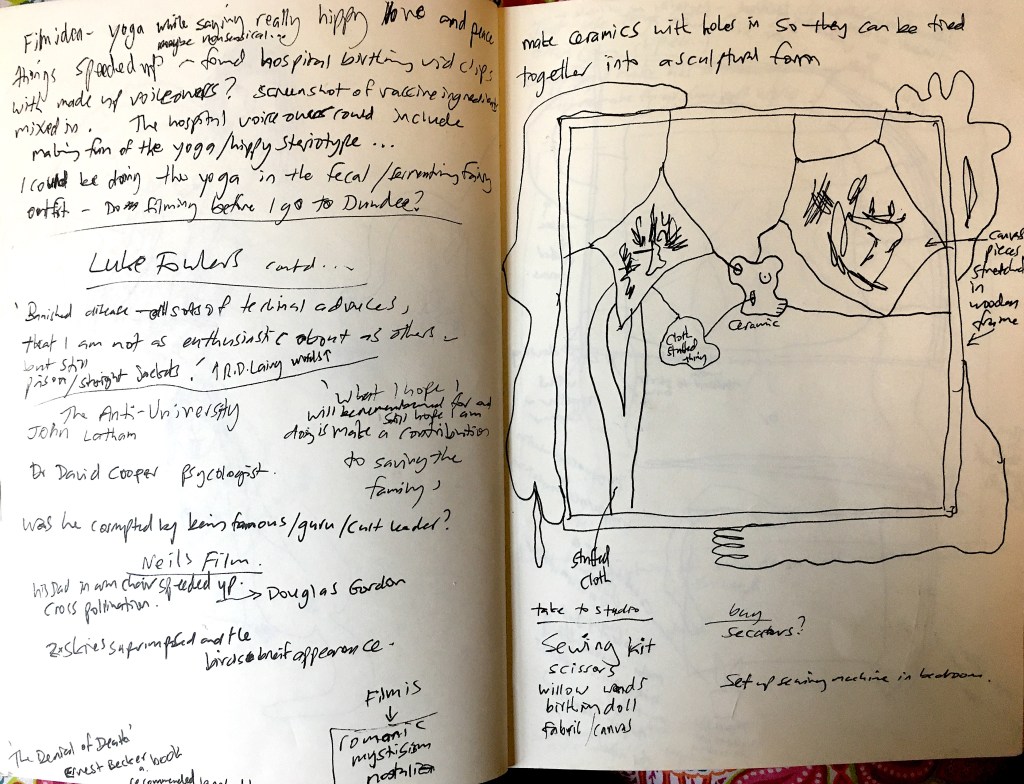 Film idea - yoga while saying really hippy love and peace
maybe nonsensical...
things speeded up? - found hospital birthing vid clips
with made up voiceovers? screenshot of vaccine ingredients
mixed in. The hospital voiceovers could include
making fun of the yoga/hippy steriotype ...
I could be doing the yoga in the fecal/
outfit - Do filming before I go to Dundee?
Luke Fowlers contd...
'Banished disease - all sorts of
that I am not as enthusiastic about as others -
but still
prison/straight jackets.' R.D. Laing words
The Anti-University
John Latham
'What I hope I
will be remembered for and
still hope I am
doing is make a contribution
to saving the
family'
Dr David Cooper psycologist.
Was he corrupted by being famous/guru/cult leader?
Neils Film.
his dad in arm chair speeded up.
cross polination.
Douglas Gordon
and the
birds brief appearance -
Film is
romantic
mystisism
'The Denial of Death'
Ernest Becker book
recommended
make ceramics with holes in so they can be tied
together into a sculptural form
canvas
pieces
stretched
in
wooden
frame
ceramic
cloth
stuffed
thing
stuffed
cloth
take to studio
sewing kit
scissors
willow wands
birthing doll
fabric/canvas
buy
secators?
Set up sewing machine in bedroom.